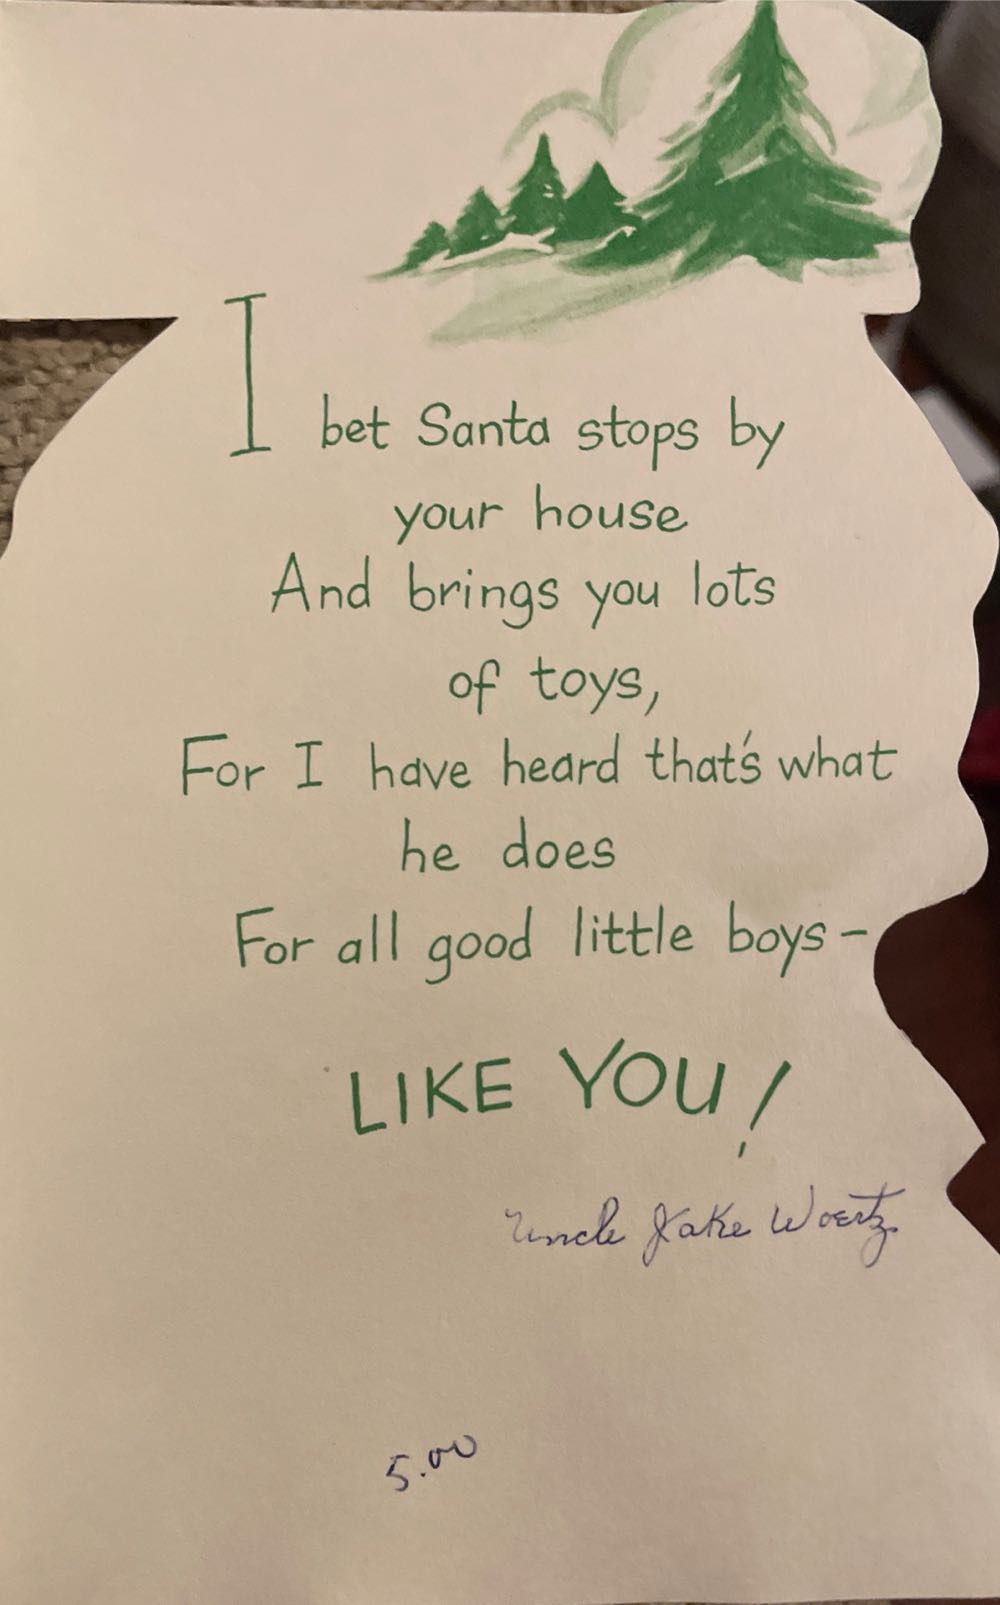 I bet Santa stops by
your house
And brings you lots
of toys,
For I have heard that's what
he does
For all good little boys-
LIKE YOU!
Uncle Jake Woertz
5.00